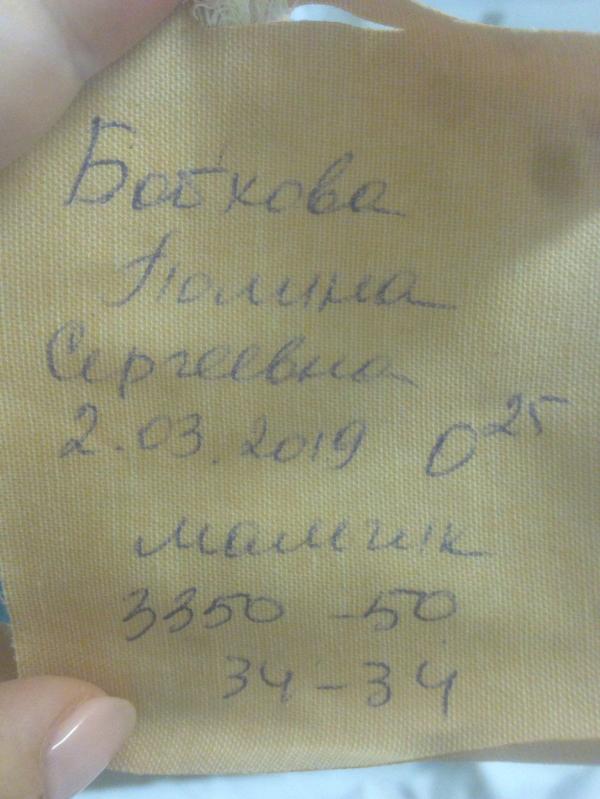 Бобкова
Полина
Сергеевна
2.03.2019 0²⁵
мальчик
3350 - 50
34 - 34